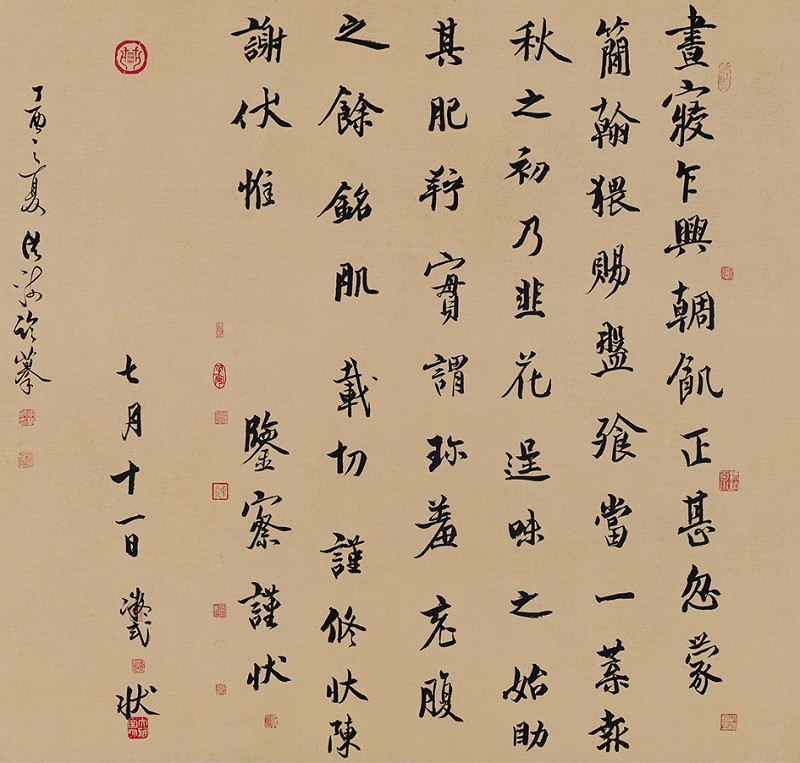 晝寢乍興輖飢正甚忽蒙
簡翰猥賜盤飧當一葉報
秋之初乃韭花逞味之始助
其肥羜實謂珍羞充腹
之餘銘肌載切謹修狀陳
謝伏惟鑒察謹狀
七月十一日凝式狀
丁酉之夏臨摹